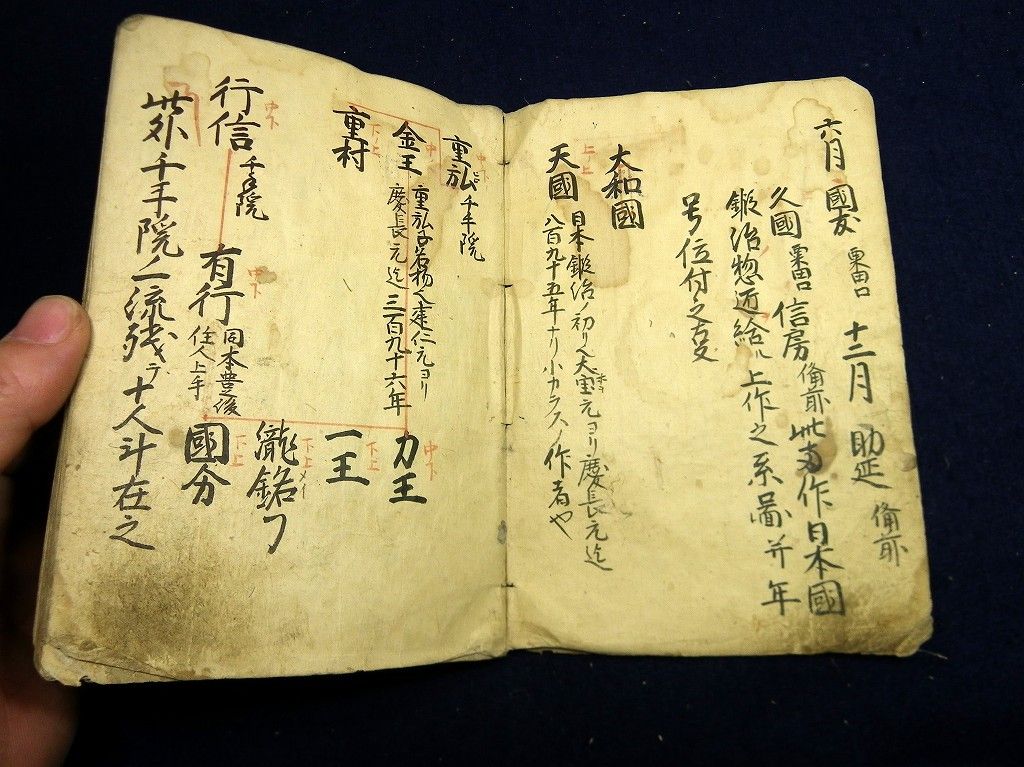 六月 國友 粟田口 十二月 助延 俻前
久國 粟田口 信房 俻前 此 作日本國
鍛冶惣 給ル上作之系圖并年
号位付之
大和國
上ノ上
天國 日本鍛冶ノ初リ大宝元ヨリ慶長元迄
八百九十五年ナリ小カラスノ作者や
中ノ上
重弘 千手院
金王 重弘子 建仁元ヨリ
慶長元迄三百九十六年
中ノ下
力王
下ノ上
重村
下ノ上
一王
中ノ下
行信 千手院
中ノ下
有行 同本豊後
住人上手
下ノ上
龍銘フ
下ノ上
國分
此外千手院ノ一流残テ十人斗在之